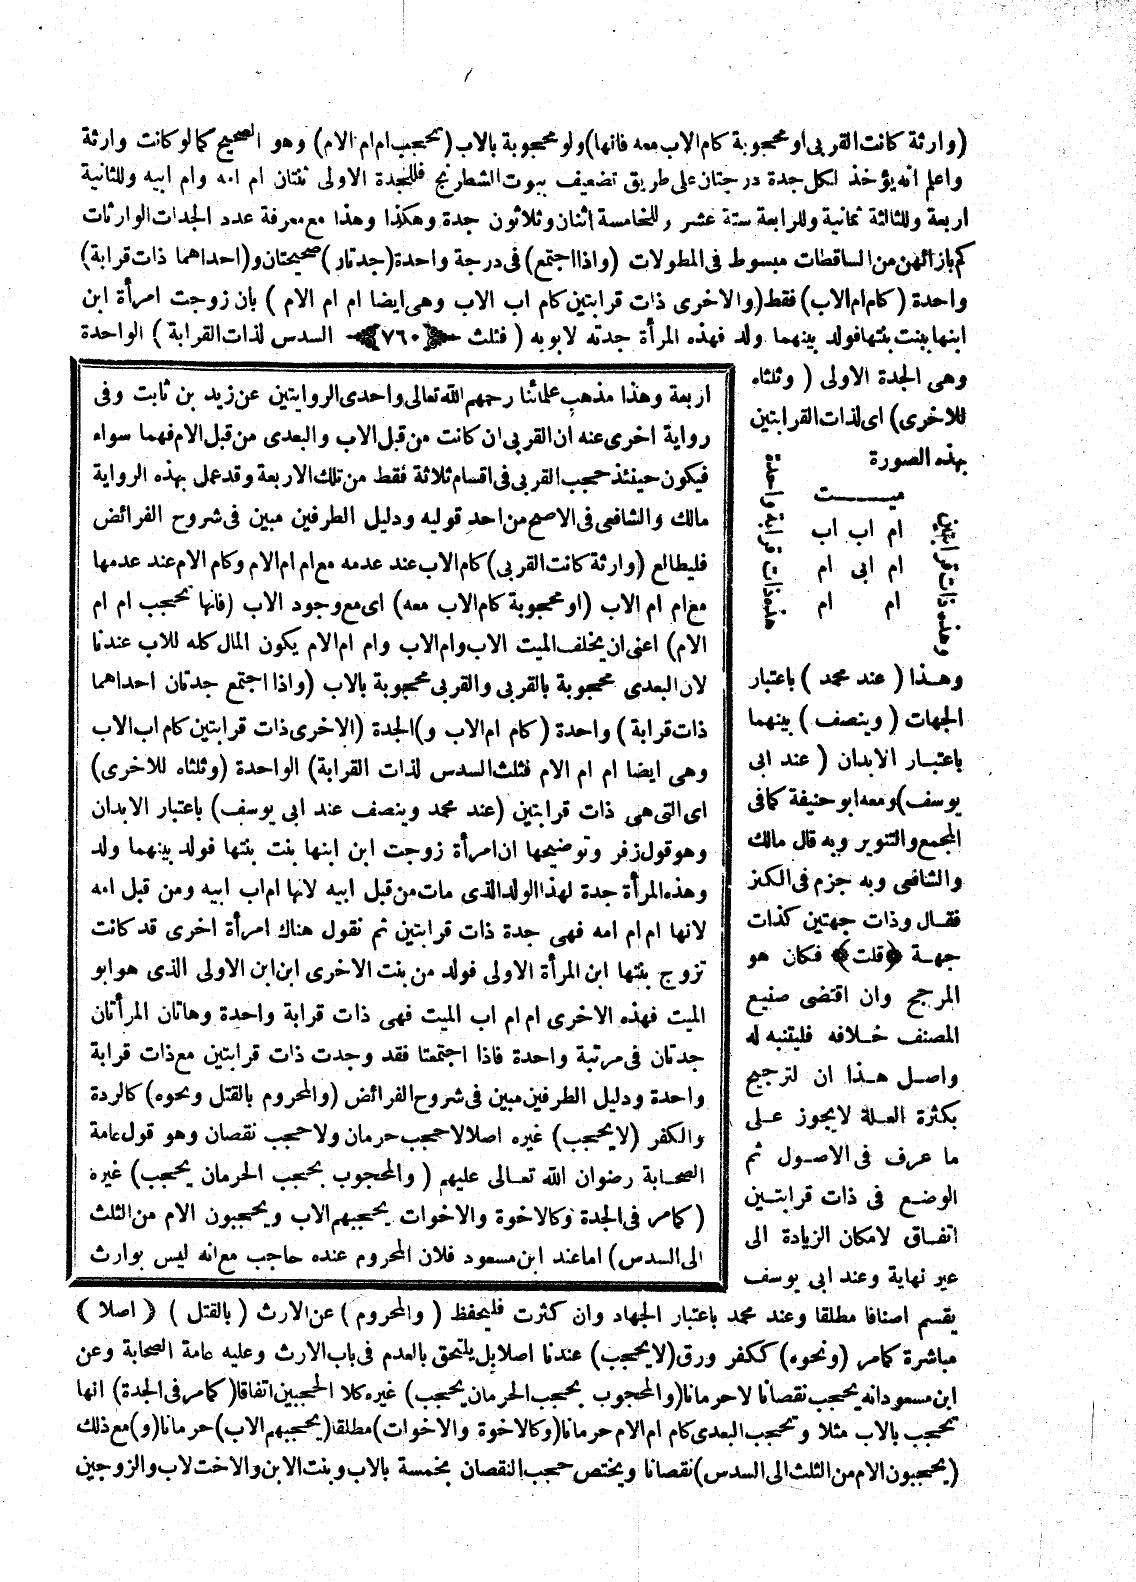 (وارثة كانت القربى او محجوبة كام الاب معه فانها) ولو محجوبة بالاب (تحجب ام ام الام) وهو الصحيح كما لو كانت وارثة
واعلم انه يؤخذ لكل جدة درجتان على طريق تضعيف بيوت الشطرنج فللجدة الاولى ثنتان ام امه وام ابيه وللثانية
اربعة وللثالثة ثمانية وللرابعة ستة عشر وللخامسة اثنان وثلاثون جدة وهكذا وهذا مع معرفة عدد الجدات الوارثات
كم بازائهن من الساقطات مبسوط فى المطولات (واذا اجتمع) فى درجة واحدة (جدتان) صحيحتان و(احداهما ذات قرابة)
واحدة (كام ام الاب) فقط (والاخرى ذات قرابتين كام اب الاب وهى ايضا ام ام الام ) بان زوجت امرأة ابن
ابنها بنت بنتها فولد بينهما ولد فهذه المرأة جدته لابويه ( فثلث ﴿٧٦٠﴾ السدس لذات القرابة ) الواحدة
وهى الجدة الاولى ( وثلثاه
للاخرى) اى لذات القرابتين
بهذه الصورة
ميـــت
ام اب اب
ام ابى ام
ام ام
هذه ذات قرابة واحدة
وهذه ذات قرابتين
وهـذا ( عند محمد ) باعتبار
الجهات ( وينصف ) بينهما
باعتبـار الابدان ( عند ابى
يوسف) ومعه ابو حنيفة كما فى
المجمع والتنوير وبه قال مالك
والشافعى وبه جزم فى الكنز
فقـال وذات جهتين كذات
جهـة ﴿قلت﴾ فكان هو
المرجح وان اقتضى صنيع
المصنف خـلافه فليتنبه له
واصـل هـذا ان لترجيح
بكثرة العـلة لا يجوز عـلى
ما عرف فى الاصـول ثم
الوضـع فى ذات قرابتـين
اتفـاق لامكان الزيادة الى
عير نهاية وعند ابى يوسف
اربعة وهذا مذهب علمائنا رحمهم الله تعالى واحدى الروايتين عن زيد بن ثابت وفى
رواية اخرى عنه ان القربى ان كانت من قبل الاب والبعدى من قبل الام فهما سواء
فيكون حينئذ حجب القربى فى اقسام ثلاثة فقط من تلك الاربعة وقد عمل بهذه الرواية
مالك والشافعى فى الاصح من احد قوليه ودليل الطرفين مبين فى شروح الفرائض
فليطالع (وارثة كانت القربى) كام الاب عند عدمه مع ام ام الام وكام الام عند عدمها
مع ام ام الاب (او محجوبة كام الاب معه) اى مع وجود الاب (فانها تحجب ام ام
الام) اعنى ان يخلف الميت الاب وام الاب وام ام الام يكون المال كله للاب عندنا
لان البعدى محجوبة بالقربى والقربى محجوبة بالاب (واذا اجتمع جدتان احداهما
ذات قرابة ) واحدة ( كام ام الاب و) الجدة (الاخرى ذات قرابتين كام اب الاب
وهى ايضا ام ام الام فثلث السدس لذات القرابة) الواحدة (وثلثاه للاخرى)
اى التى هى ذات قرابتين (عند محمد وينصف عند ابى يوسف) باعتبار الابدان
وهو قول زفر وتوضيحها ان امرأة زوجت ابن ابنها بنت بنتها فولد بينهما ولد
وهذه المرأة جدة لهذا الولد الذى مات من قبل ابيه لانها ام اب ابيه ومن قبل امه
لانها ام ام امه فهى جدة ذات قرابتين ثم نقول هناك امرأة اخرى قد كانت
تزوج بنتها ابن المرأة الاولى فولد من بنت الاخرى ابن ابن الاولى الذى هو ابو
الميت فهذه الاخرى ام ام اب الميت فهى ذات قرابة واحدة وهاتان المرأتان
جدتان فى مرتبة واحدة فاذا اجتمعتا فقد وجدت ذات قرابتين مع ذات قرابة
واحدة ودليل الطرفين مبين فى شروح الفرائض (والمحروم بالقتل ونحوه) كالردة
والكفر (لا يحجب) غيره اصلا لا حجب حرمان ولا حجب نقصان وهو قول عامة
الصحـابة رضوان الله تعـالى عليهم ( والمحجوب بحجب الحرمان يحجب) غيره
( كما مر فى الجدة وكالاخوة والاخوات يحجبهم الاب ويحجبون الام من الثلث
الى السدس ) اما عند ابن مسعود فلان المحروم عنده حاجب مع انه ليس بوارث
يقسم اصنافا مطلقا وعند محمد باعتبار الجهاد وان كثرت فليحفظ ( والمحروم ) عن الارث ( بالقتل ) ( اصلا )
مباشرة كما مر (ونحوه) ككفر ورق (لا يحجب) عندنا اصلا بل يلتحق بالعدم فى باب الارث وعليه عامة الصحابة وعن
ابن مسعود انه يحجب نقصانا لا حرمانا (والمحجوب بحجب الحرمان يحجب) غيره كلا الحجبين اتفاقا (كما مر فى الجدة) انها
تحجب بالاب مثلا وتحجب البعدى كام ام الام حرمانا (وكالاخوة والاخوات) مطلقا (يحجبهم الاب) حرمانا (و) مع ذلك
(يحجبون الام من الثلث الى السدس) نقصانا ويختص حجب النقصان بخمسة بالاب وبنت الابن والاخت لاب والزوجين